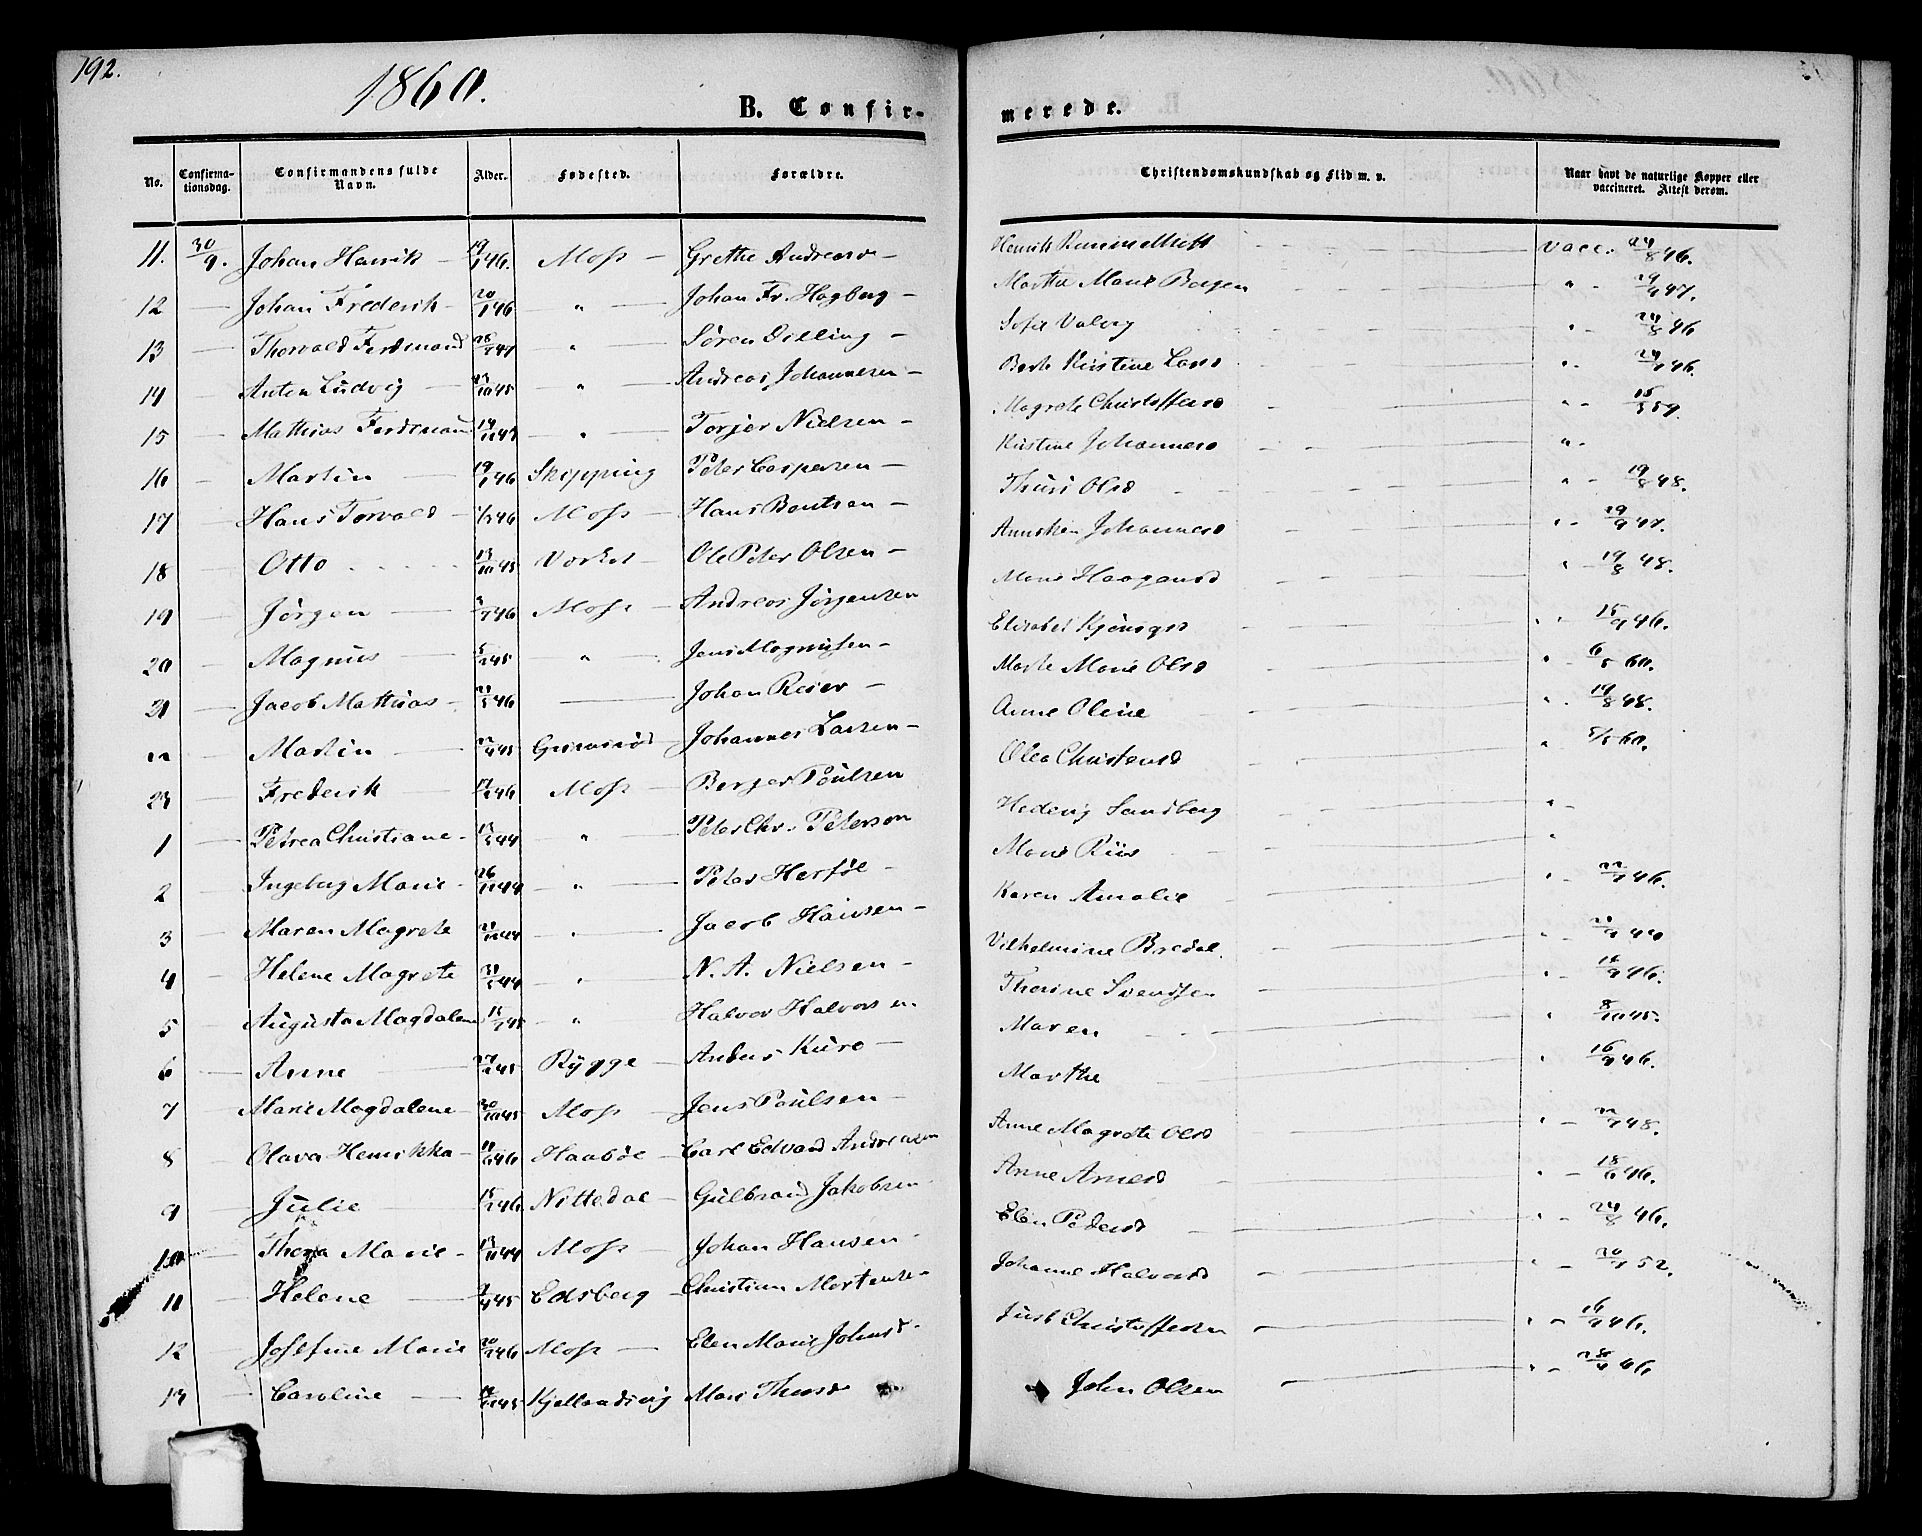 192.
1860.
B. Confir-
merede.
No.
Confirma-
tionsdag.
Confirmandens fulde
Navn.
Alder.
Fødested.
Forældre.
Christendomskundskab og Flid m. v.
Naar havt de naturlige Kopper eller
vaccineret. Attest derom.
11. 30/9. Johan Henrik 19/1 46. Moss Grethe Andreasd Henrik vacc. 24/8 46.
12 Johan Frederik 20/1 46 " Johan Fr. Hogberg Marthe Marie Borgen " 29/9 47.
13 Thorvald Ferdinand " Søren Dilling Sofie Valberg " 24/8 46
14 Anton Ludvig 10 45 " Andreas Johannesen Berte Kirstine Larsd " 46.
15 Mathias Ferdinand " Torjer Nielsen Magrete Christoffersd " 59.
16 Martin 46 Skipping Peter Caspersen Kirstine Johannesd "
17 Hans Torvald 46 Moss Hans Bentsen Thuri Olsd " 19/8 48.
18 Otto 13/10 45 Ole Peter Olsen Annsken Johannesd " 29/9 47.
19 Jørgen 46 Moss Andreas Jørgensen Marie Haagensd " 19/8 48.
20 Magnus 45 " Jens Magnusen Elisabet " 15/9 46.
21 Jacob Mathias 46 Johan Reier Marte Marie Olsd " 6/5 60.
22 Martin 45 Johannes Larsen Anne Oline " 19/8 48.
23 Frederik 46 Moss Berger Poulsen Olea Christensd " 5/5 60.
1 Petrea Christiane 44 " Peter Chr. Peterson Hedevig Sandberg "
2 Ingeborg Marie 26/11 44 " Peter Herføl Marie Riis "
3 Maren Magrete 44 " Jacob Hansen Karen Amalie " 46.
4 Helene Magrete 44 " N. A. Nielsen Vilhelmine Bredal. "
5 Augusta Magdalene 45 " Halvor Halvorsen Therine Svendsen " 46.
6 Anne 45 Rygge Anders Kure Maren " 8/10 45.
7 Marie Magdalene 30/10 45 Moss Jens Poulsen Marthe " 16/9 46.
8 Olava Henrikka 46 Haabøl Carl Edvard Andreasen Anne Magrete Olsd " 48.
9 Julie 46 Nittedal Gulbrand Jakobsen Anne Arnesd " 18/6 46.
10 Thora Marie 44 Moss Johan Hansen Elen Pedersd " 24/8 46.
11 Helene 45 Edsberg Christian Mortense Johanne Halvorsd " 52.
12 Josefine Marie 46 Moss Elen Marie Johnsd Just Christoffersen " 16/9 46.
13 Caroline 45 Kjellandsvig Mari John Olsen " 46